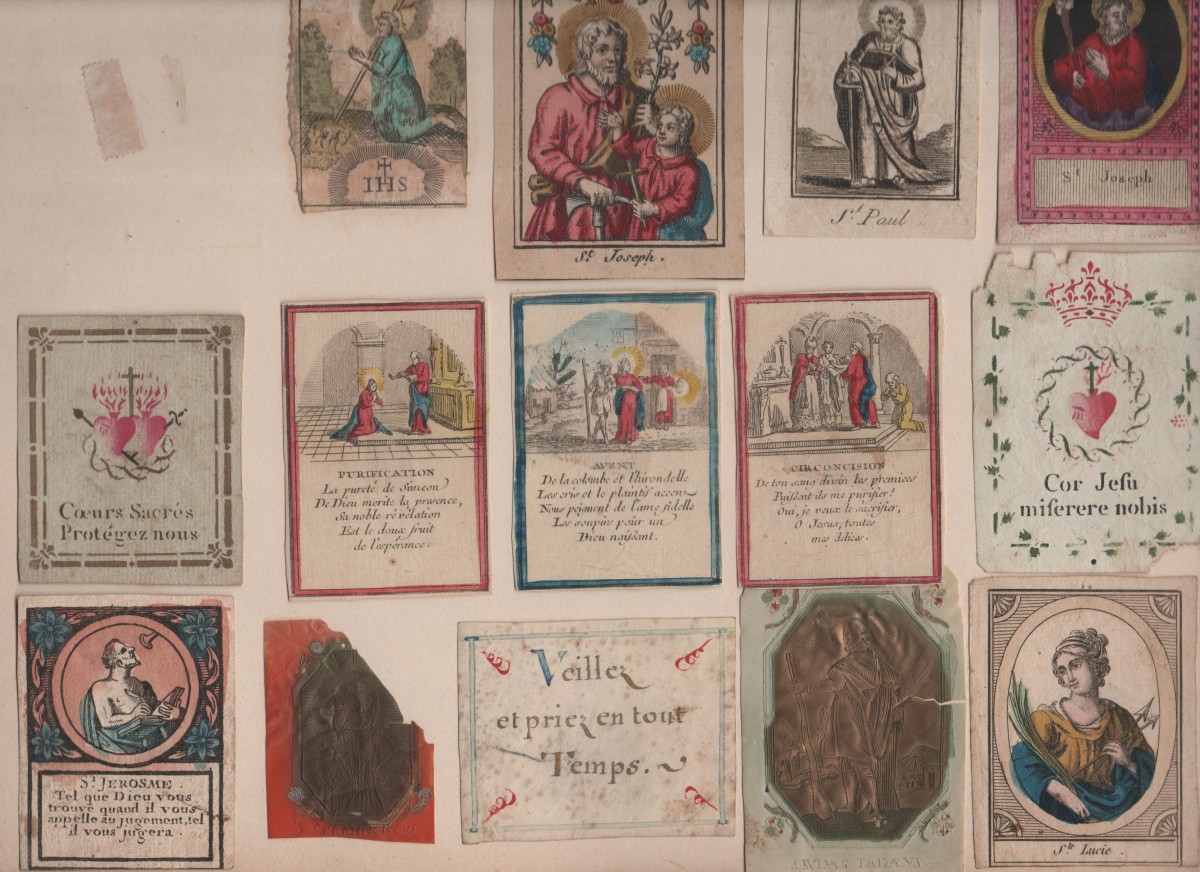 IHS
St. Joseph.
St. Paul
St. Joseph
Cœurs Sacrés
Protégez nous
PURIFICATION
La pureté de Simeon
De Dieu merite la prœsence,
Sa noble révélation
Est le doux fruit
de l'espérance.
AVENT
De la colombe et l'hirondelle
Les cris et le plaintif accens
Nous peignent de l'ame fidelle
Les soupirs pour un
Dieu naissant.
CIRCONCISION
De ton sang divin les premices
Puissent ils me purifier!
Oui, je veux le sacrifier,
O Jesus, toutes
mes délices.
Cor Jesu
miserere nobis
St. JEROSME.
Tel que Dieu vous
trouve quand il vous
appelle au jugement, tel
il vous jugera.
Veillez
et priez en tout
Temps.
S. IVDAS TADAVS
Ste Lucie.